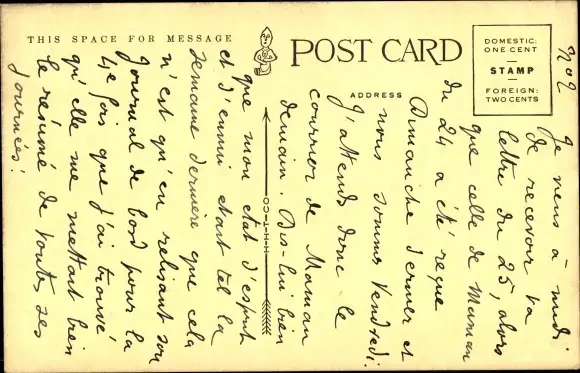 THIS SPACE FOR MESSAGE
POST CARD
ADDRESS
DOMESTIC:
ONE CENT
STAMP
FOREIGN:
TWO CENTS
No 2
Je viens à midi
de recevoir ta
lettre du 25, alors
que celle de Maman
du 24 a été reçue
Dimanche dernier et
nous sommes Vendredi.
J'attends donc le
courrier de Maman
demain. Dis-lui bien
que mon état d'esprit
et d'ennui était tel la
semaine dernière que cela
n'est qu'en relisant son
journal de bord pour la
4e fois que j'ai trouvé
qu'elle me mettait bien
le résumé de toutes ses
journées!